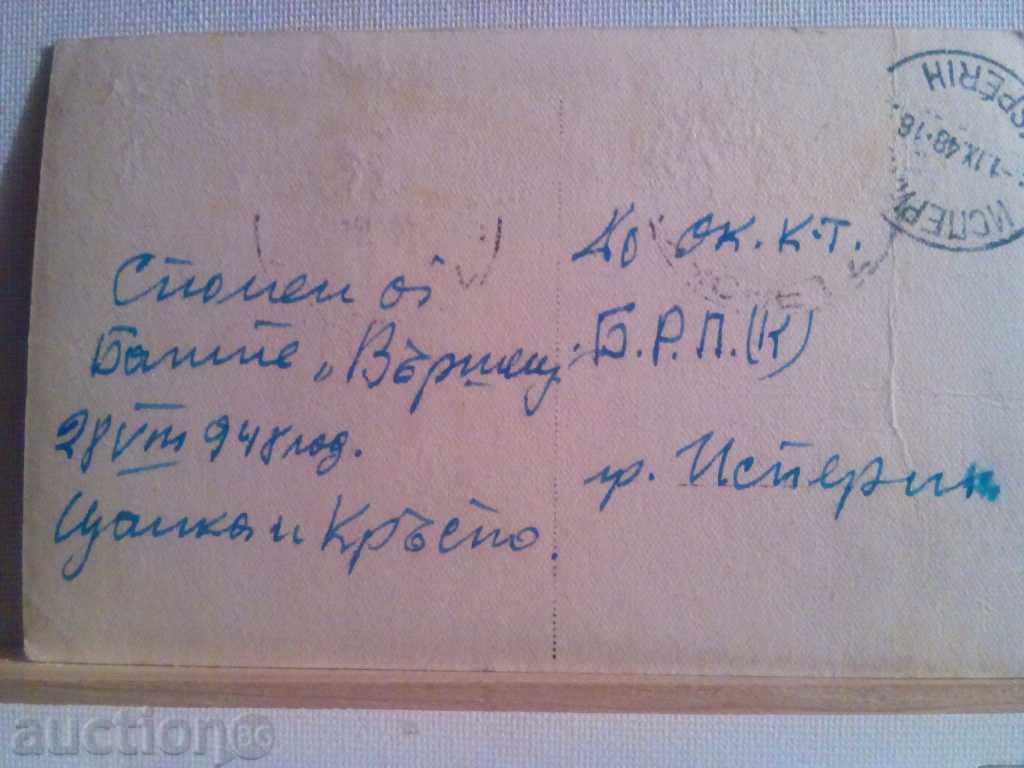 Спомен от
Баните „Вършец
28 VIII 948 год.
Цанка и Кръсто.
До ОК. К-Т.
Б.Р.П. (К)
гр. Исперих
ИСПЕР
1.IX.48-18
SPERIH
auction BG